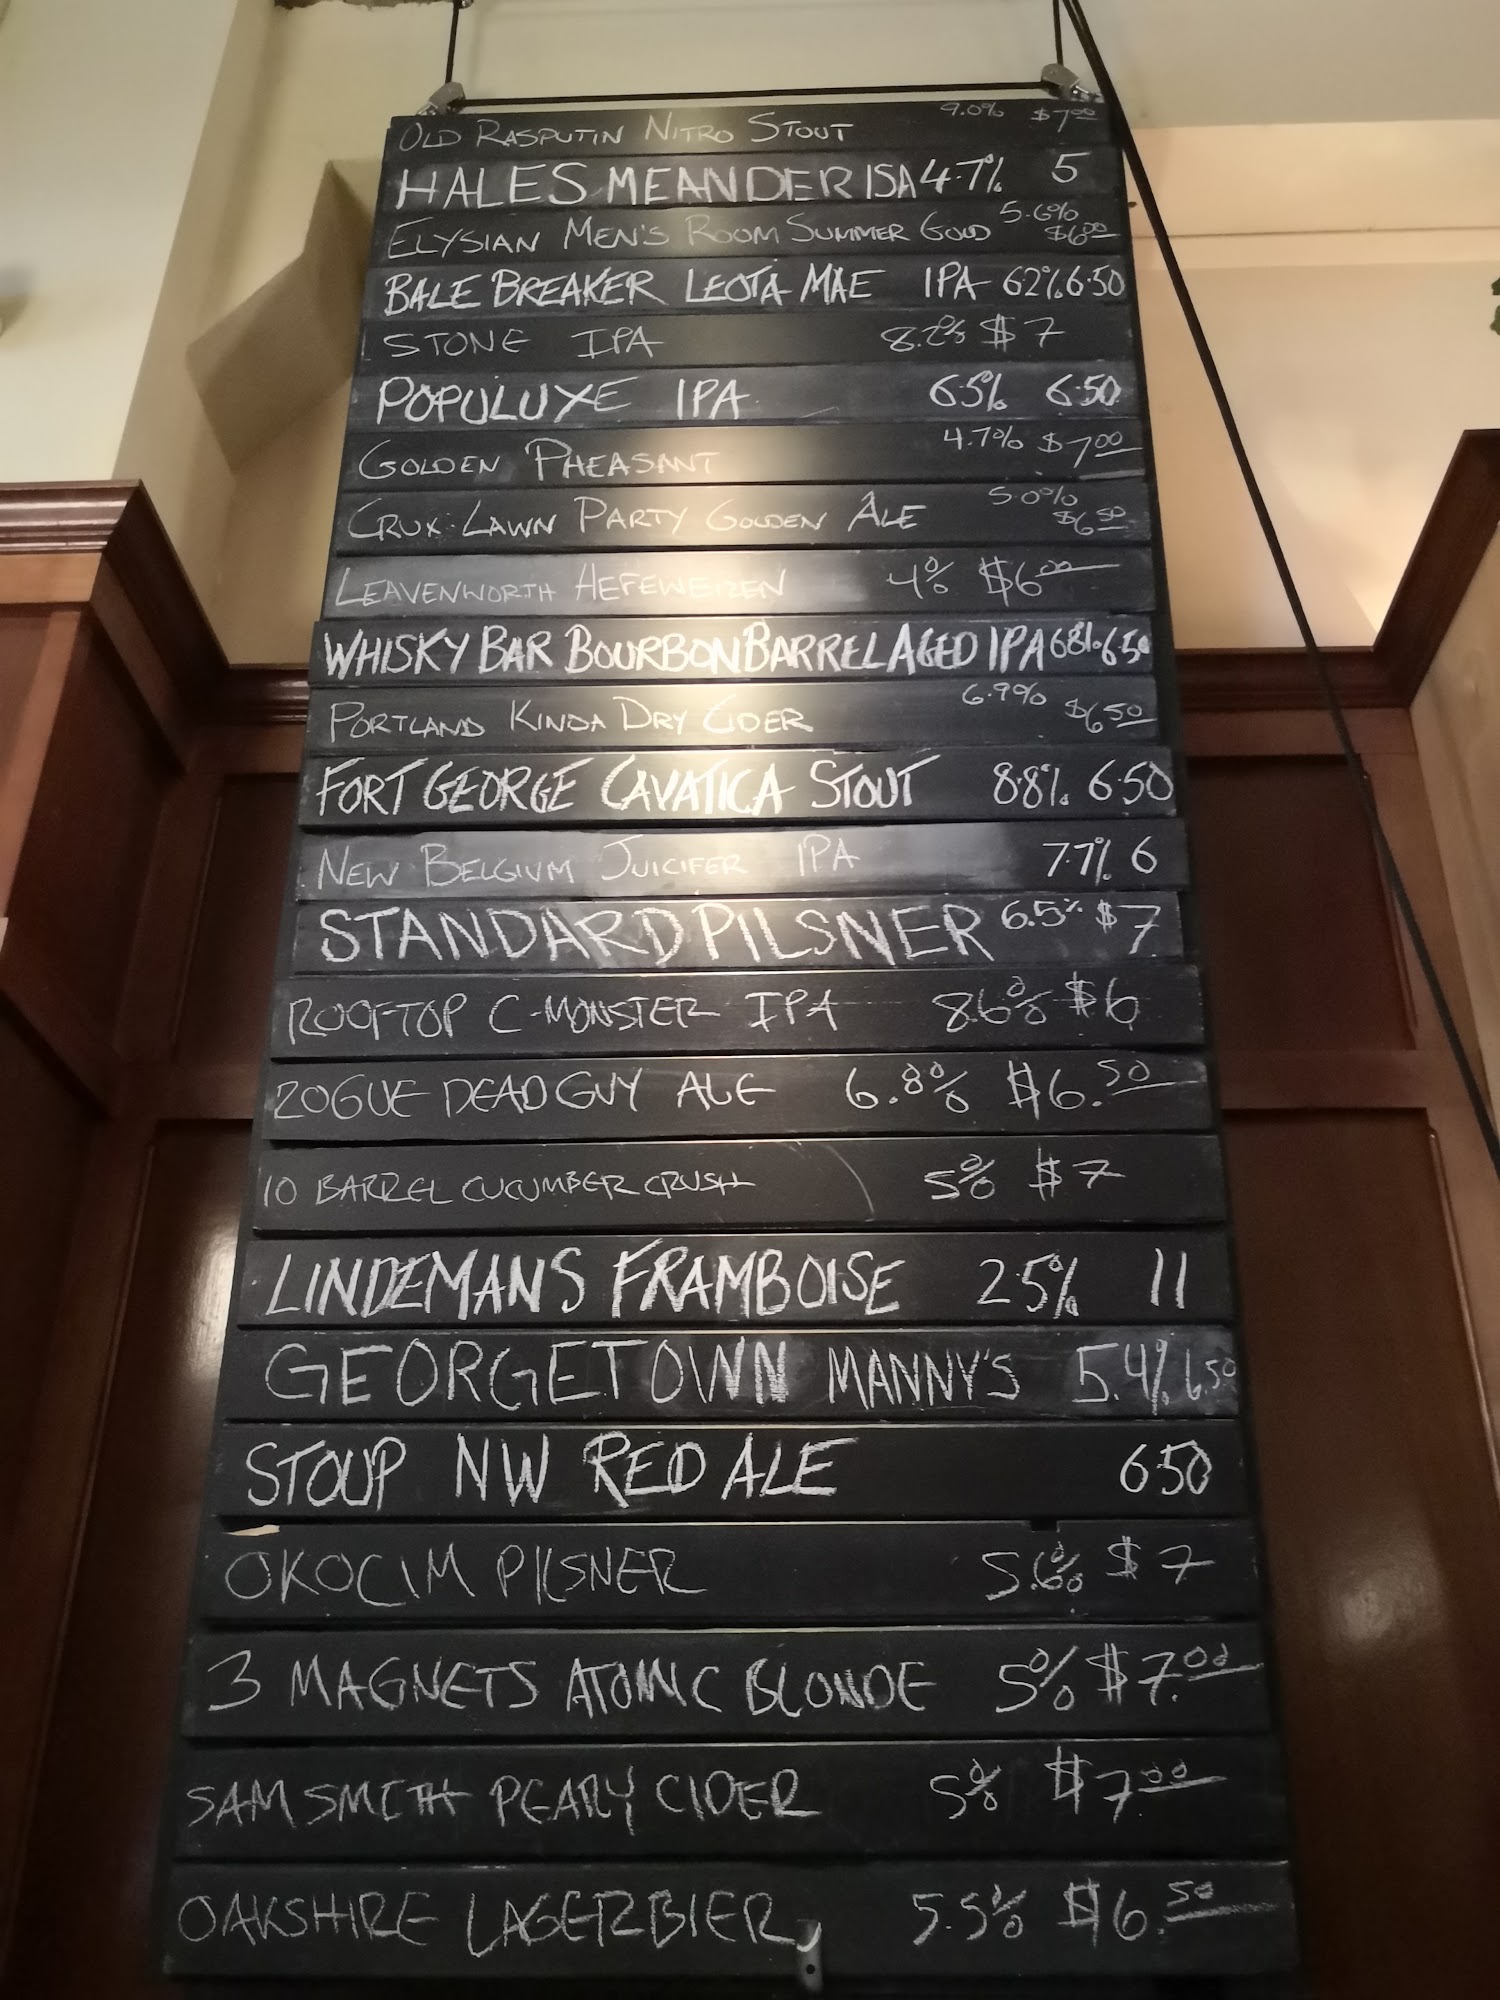 OLD RASPUTIN NITRO STOUT 9.0% $7.00
HALES MEANDER ISA 4.7% 5
ELYSIAN MEN'S ROOM SUMMER GOLD 5.6% $6.00
BALE BREAKER LEOTA MAE IPA 6.2% 6.50
STONE IPA 8.2% $7
POPULUXE IPA 6.5% 6.50
GOLDEN PHEASANT 4.7% $7.00
CRUX LAWN PARTY GOLDEN ALE 5.0% $6.50
LEAVENWORTH HEFEWEIZEN 4% $6.00
WHISKY BAR BOURBON BARREL AGED IPA 6.8% 6.50
PORTLAND KINDA DRY CIDER 6.9% $6.50
FORT GEORGE CAVATICA STOUT 8.8% 6.50
NEW BELGIUM JUICIFER IPA 7.7% 6
STANDARD PILSNER 6.5% $7
ROOFTOP C-MONSTER IPA 8.6% $6
ROGUE DEAD GUY ALE 6.8% $6.50
10 BARREL CUCUMBER CRUSH 5% $7
LINDEMANS FRAMBOISE 2.5% 11
GEORGETOWN MANNY'S 5.4% 6.50
STOUP NW RED ALE 6.50
OKOCIM PILSNER 5.6% $7
3 MAGNETS ATOMIC BLONDE 5% $7.00
SAM SMITH PEARY CIDER 5% $7.00
OAKSHIRE LAGERBIER 5.5% $6.50